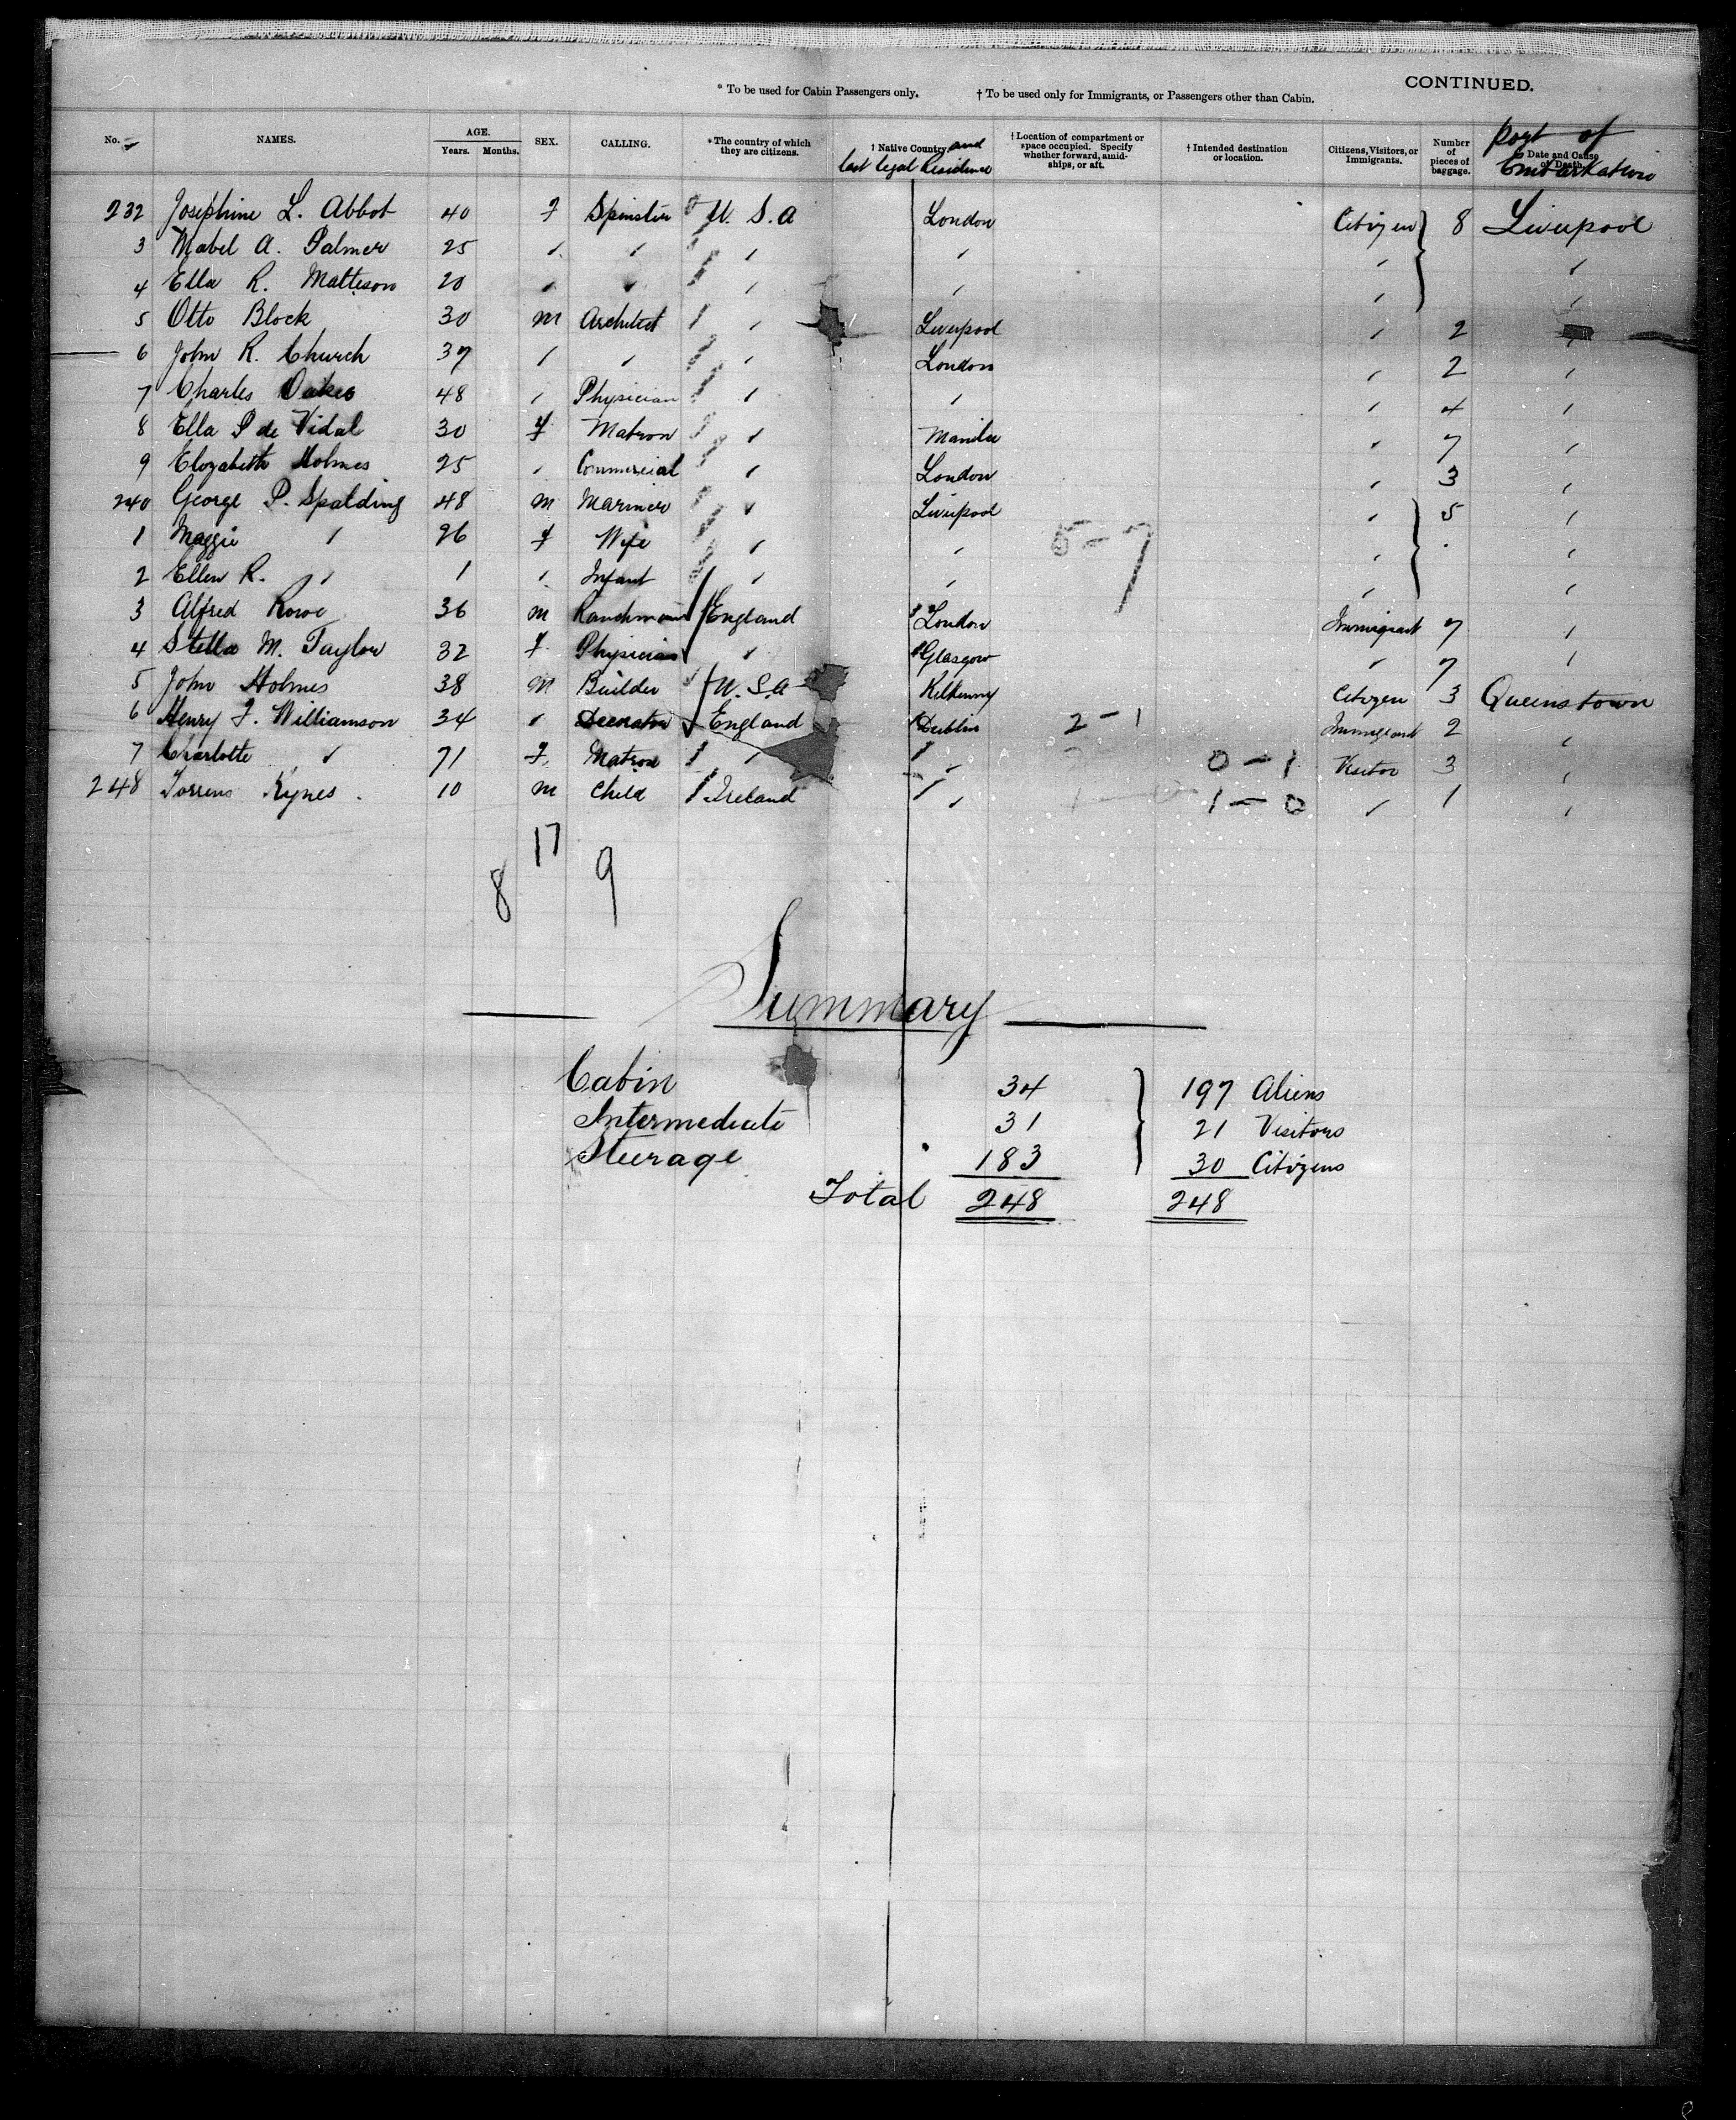 CONTINUED.
* To be used for Cabin Passengers only. † To be used only for Immigrants, or Passengers other than Cabin.
No. NAMES. AGE. Years. Months. SEX. CALLING. *The country of which they are citizens. † Native Country and last legal Residence † Location of compartment or space occupied. Specify whether forward, amidships, or aft. † Intended destination or location. Citizens, Visitors, or Immigrants. Number of pieces of baggage. Date and Cause of Death. Port of Embarkation
232 Josephine L. Abbot 40 f Spinster U. S. A London Citizen 8 Liverpool
3 Mabel A. Palmer 25 " " " " " "
4 Ella R. Matteson 20 " " " " " "
5 Otto Block 30 m Architect " Liverpool " 2 "
6 John R. Church 37 " " " London " 2 "
7 Charles Oakes 48 " Physician " " " 4 "
8 Ella P de Vidal 30 f Matron " Manila " 7 "
9 Elizabeth Holmes 25 " Commercial " London " 3 "
240 George P. Spalding 48 m Mariner " Liverpool " 5 "
1 Maggie " 26 f Wife " " 5-7 " "
2 Ellen R. " 1 " Infant " " " "
3 Alfred Rowe 36 m Ranchman England London Immigrant 7 "
4 Stella M. Taylor 32 f Physician " Glasgow " 7 "
5 John Holmes 38 m Builder U. S. A Kilkenny Citizen 3 Queenstown
6 Henry J. Williamson 34 " Decorator England Dublin 2-1 Immigrant 2 "
7 Charlotte " 71 f Matron " " 0-1 Visitor 3 "
248 Torrens Kynes 10 m Child Ireland " 1-0 " 1 "
17
8 9
Summary
Cabin 34 197 Aliens
Intermediate 31 21 Visitors
Steerage 183 30 Citizens
Total 248 248